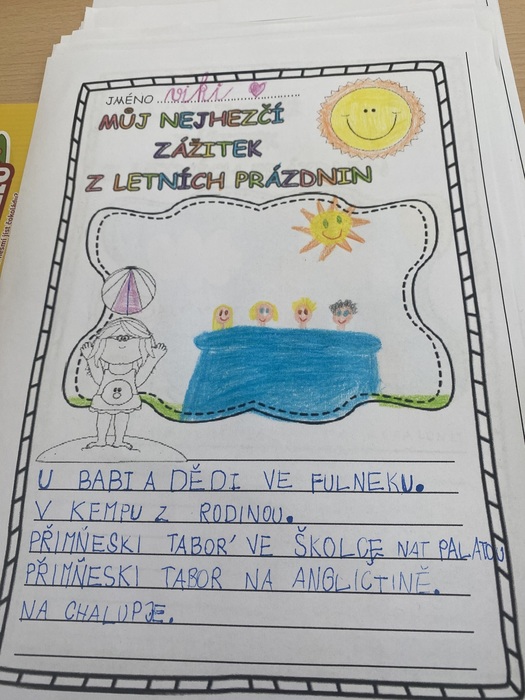 JMÉNO viki
MŮJ NEJHEZČÍ
ZÁŽITEK
Z LETNÍCH PRÁZDNIN
U BABI A DĚDI VE FULNEKU.
V KEMPU Z RODINOU.
PŘIMŇESKI TABOR VE ŠKOLCE NAT PALATOU
PŘIMŇESKI TABOR NA ANGLICTINĚ.
NA CHALUPJE.